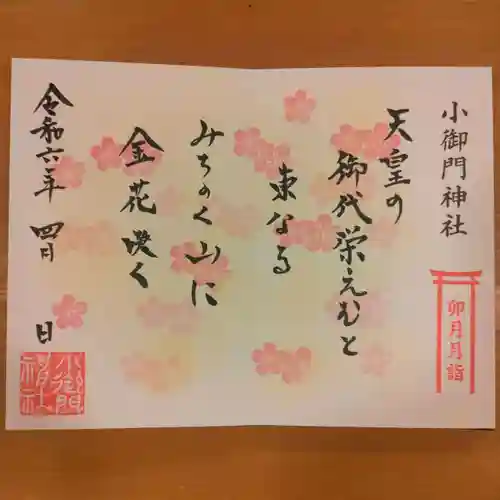 小御門神社
卯月月詣
天皇の
御代栄えむと
東なる
みちのく山に
金花咲く
令和六年 四月 日
小御門神社